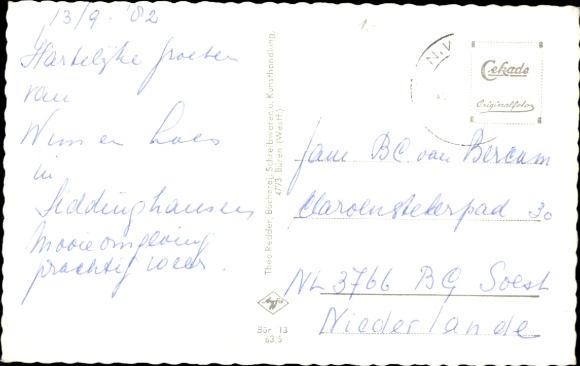 13/9-'82
Hartelijke groeten
van
Wim en Loes
in
Siddinghausen
Mooie omgeving
prachtig weer.
Theo Redder, Buchdruckerei, Schreibwaren u. Kunsthandlung,
4793 Büren (Westf.)
Agfa
Bür 13
63 S
N.V
Cekade
Originalfoto
Fam BC van Bercum
Clarensteterpad 30
NL 3766 BG Soest
Niederlande